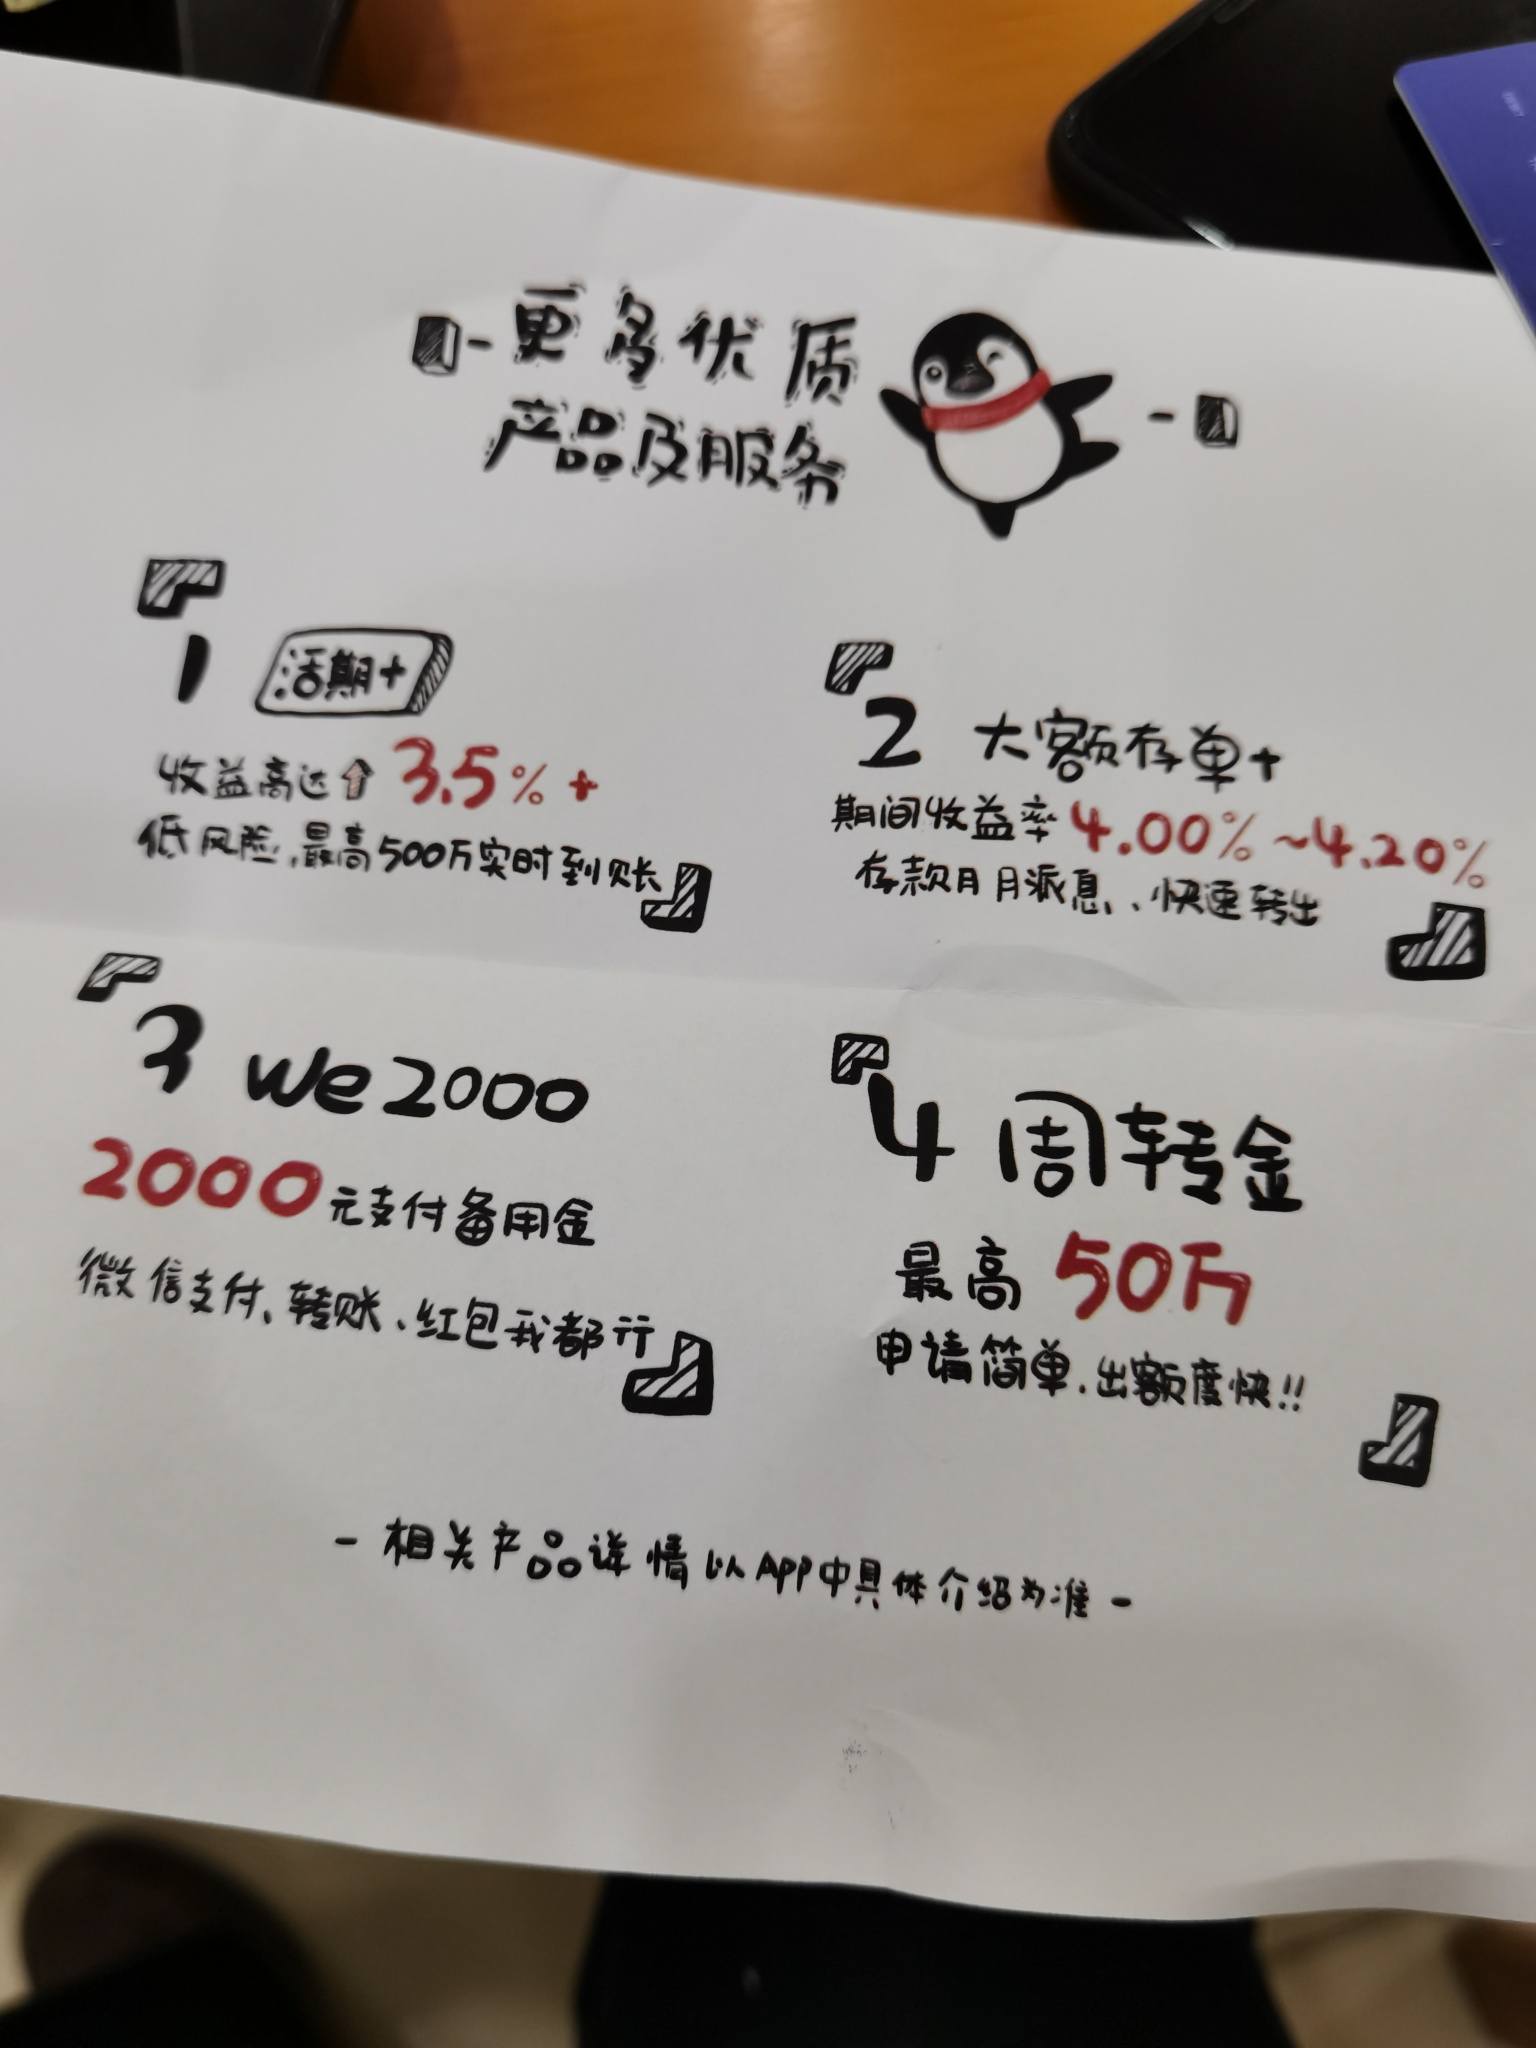 更多优质
产品及服务
1 活期+
收益高达 3.5%+
低风险,最高500万实时到账
2 大额存单+
期间收益率4.00%~4.20%
存款月月派息、快速转出
3 We2000
2000元支付备用金
微信支付、转账、红包我都行
4 周转金
最高 50万
申请简单,出额度快!!
- 相关产品详情以APP中具体介绍为准 -